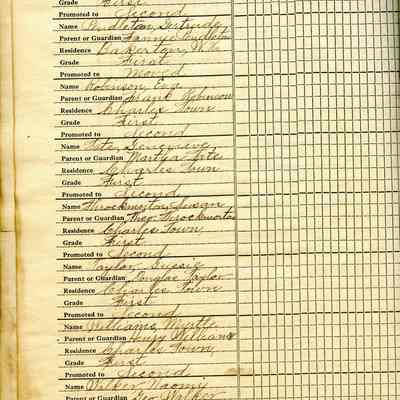 Grade First
Promoted to Second
Name Pendleton, Gertrude
Parent or Guardian Fannie Pendleton
Residence Bakerton, W.Va.
Grade First
Promoted to Moved
Name Robinson, Eva
Parent or Guardian Frank Robinson
Residence Charles Town
Grade First
Promoted to Second
Name Tite, Genevieve
Parent or Guardian Martha Tite
Residence Charles Town
Grade First
Promoted to Second
Name Throckmorton, Susan
Parent or Guardian Theo. Throckmorton
Residence Charles Town
Grade First
Promoted to Second
Name Taylor, Sussie
Parent or Guardian Douglas Taylor
Residence Charles Town
Grade First
Promoted to Second
Name Williams, Myrtle
Parent or Guardian Henry Williams
Residence Charles Town
Grade First
Promoted to Second
Name Walker, Naomy
Parent or Guardian Geo. Walker